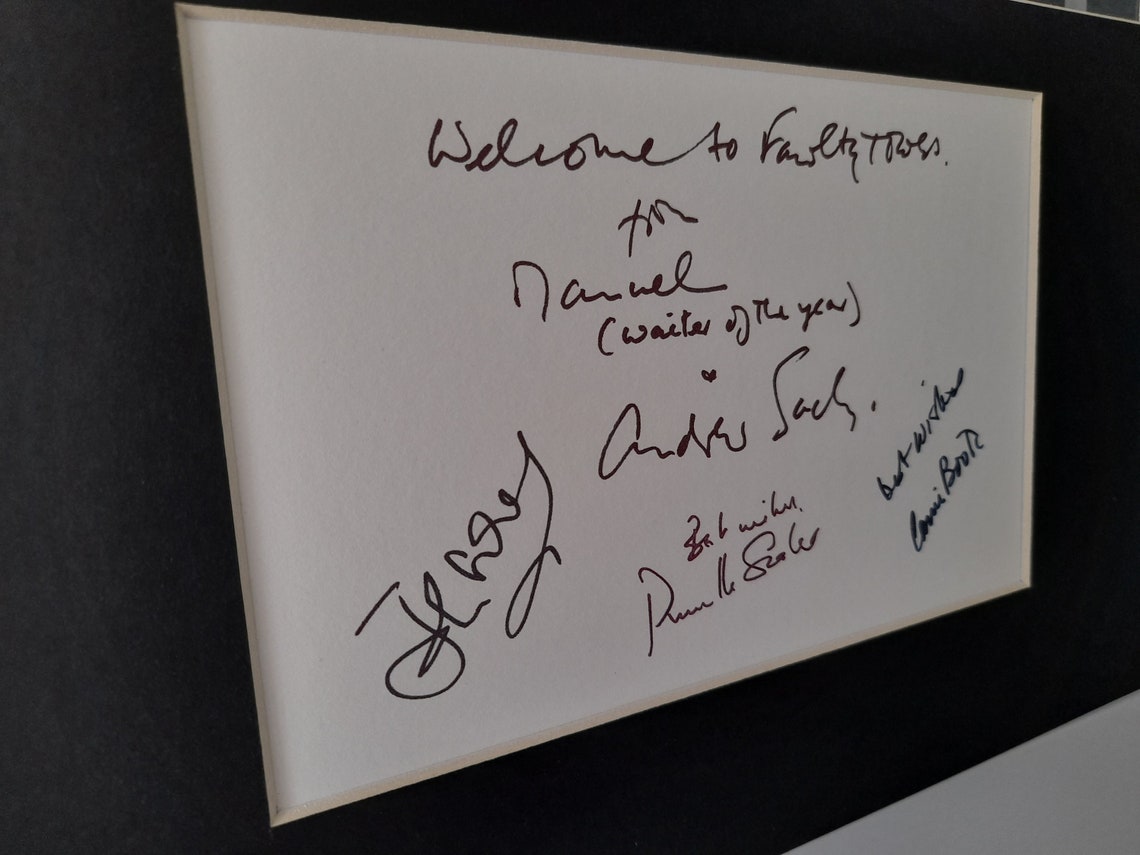 Welcome to Fawlty Towers.
from
Manuel
(waiter of the year)
Andrew Sachs.
John Cleese
Best wishes,
Prunella Scales
best wishes
Connie Booth